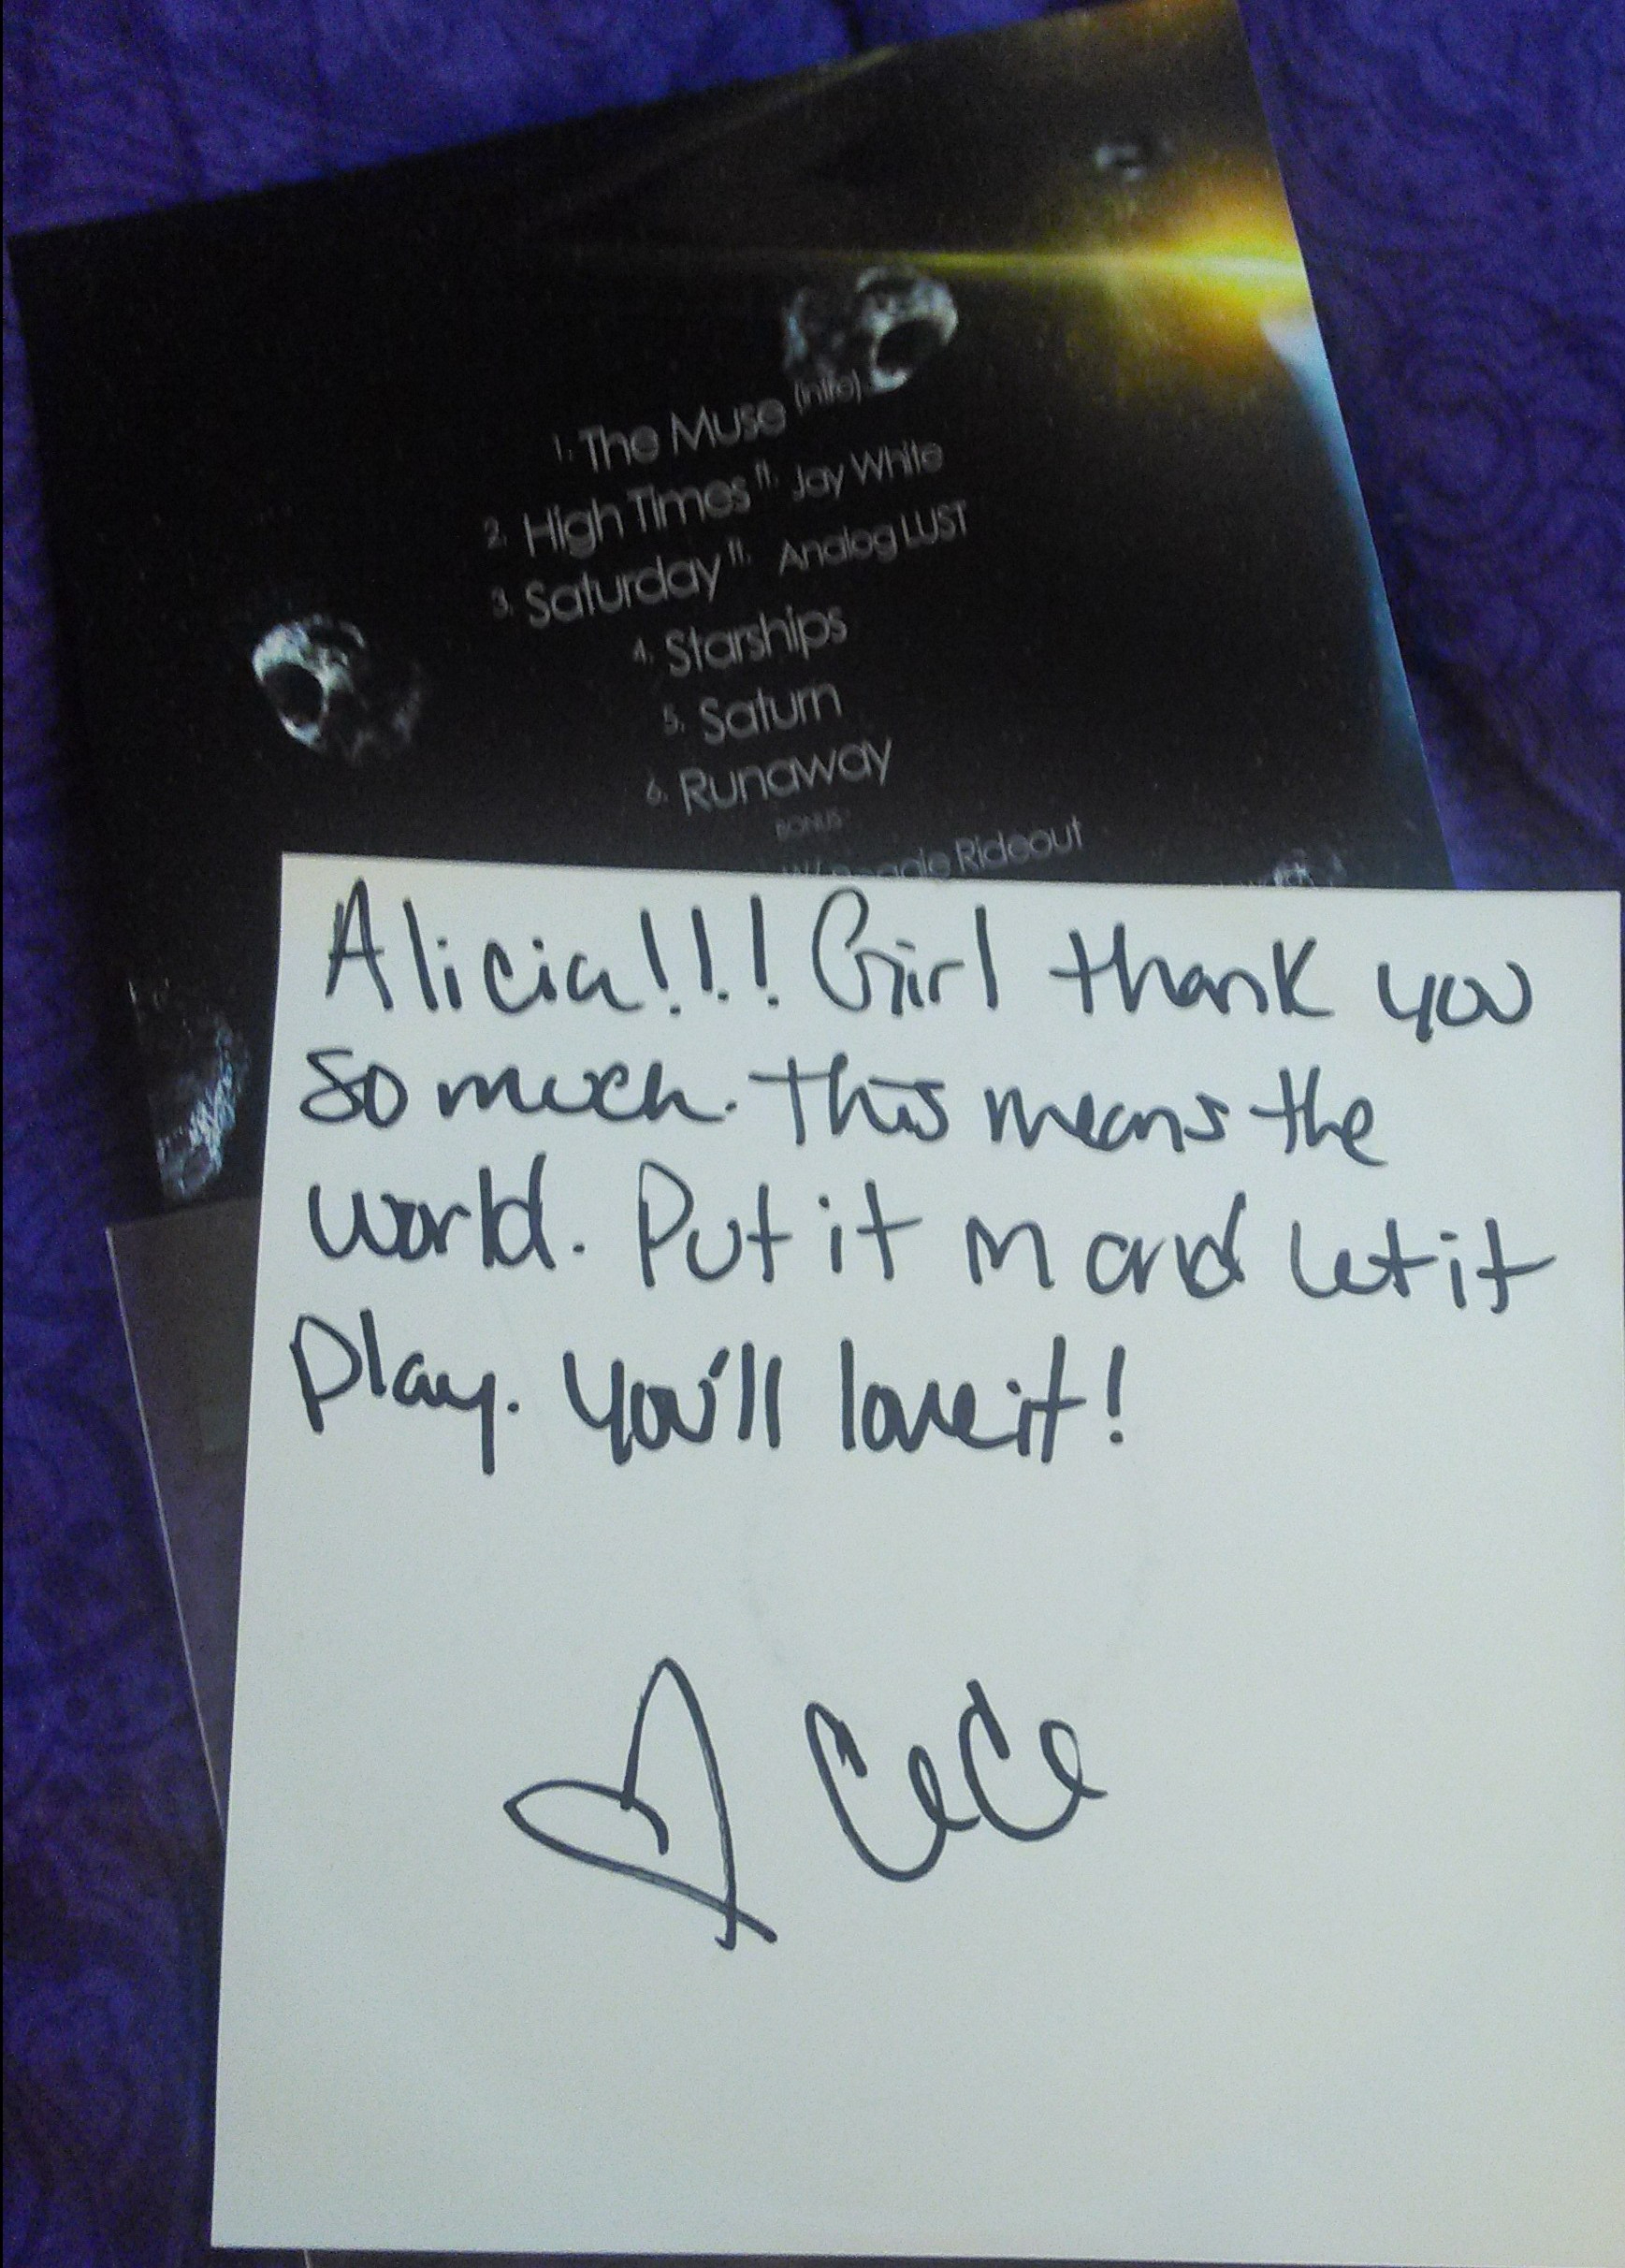 1. The Muse (intro)
2. High Times ft. Jay White
3. Saturday ft. Analog LUST
4. Starships
5. Saturn
6. Runaway
BONUS
W/ Rideout
Alicia!!! Girl thank you
so much. This means the
world. Put it in and let it
play. You'll love it!
♡ CeCe